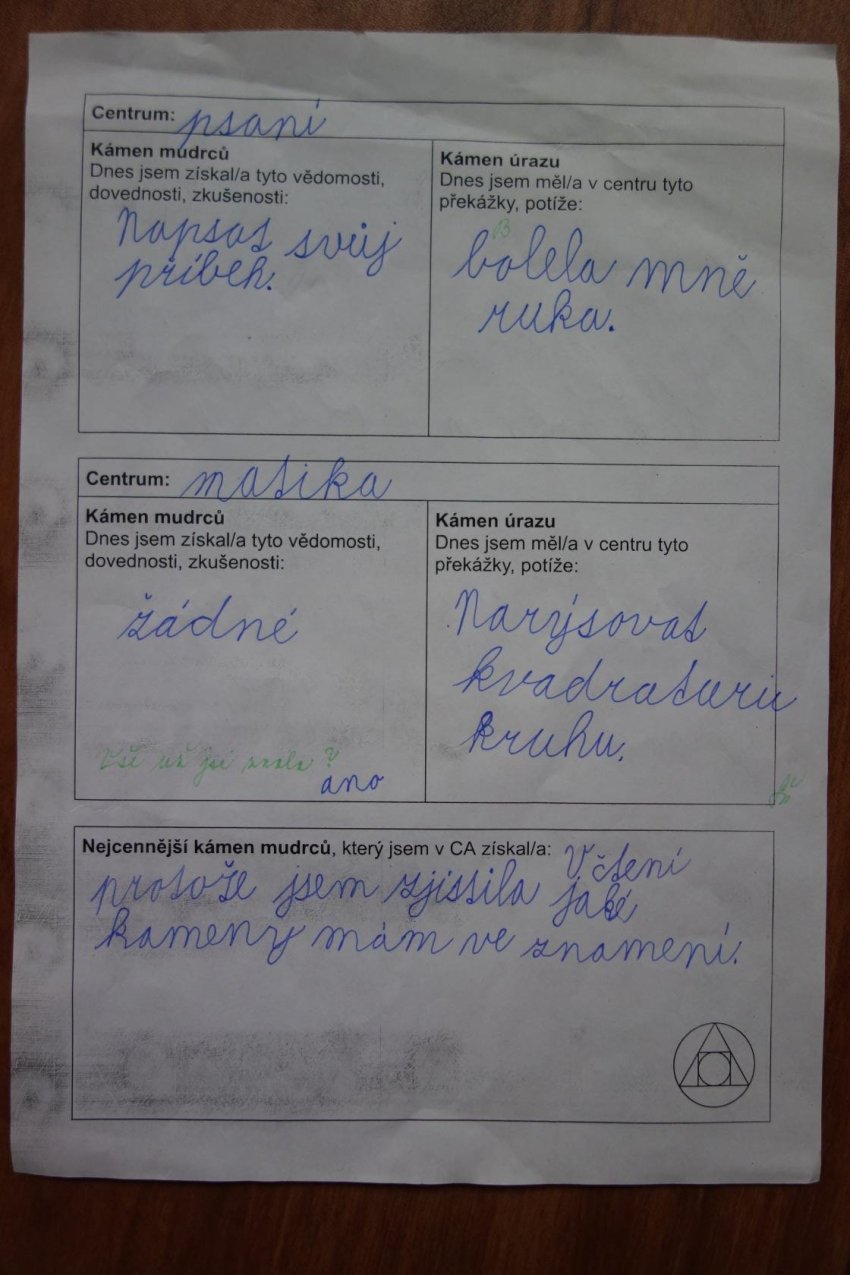 Centrum: psaní
Kámen mudrců
Dnes jsem získal/a tyto vědomosti,
dovednosti, zkušenosti:
Napsat svůj
příbeh.
Kámen úrazu
Dnes jsem měl/a v centru tyto
překážky, potíže:
B
bolela mně
ruka.
Centrum: matika
Kámen mudrců
Dnes jsem získal/a tyto vědomosti,
dovednosti, zkušenosti:
žádné
Vše už jsi znala?
ano
Kámen úrazu
Dnes jsem měl/a v centru tyto
překážky, potíže:
Narýsovat
kvadraturu
kruhu.
Nejcennější kámen mudrců, který jsem v CA získal/a: V čtení
protože jsem zjistila jaké
kameny mám ve znamení.